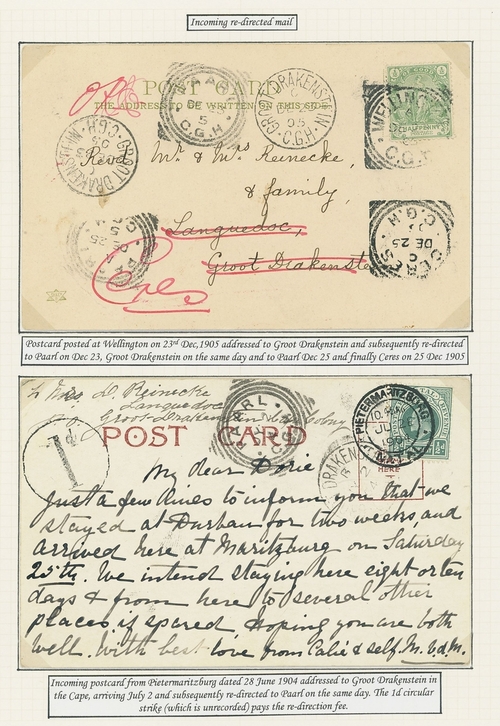 Incoming re-directed mail
POST CARD
THE ADDRESS TO BE WRITTEN ON THIS SIDE
PAARL
DE
5
C.G.H
GROOT DRAKENSTEIN
05
C.G.H.
WELLINGTON
C.G.H
HALFPENNY
GROOT DRAKENSTEIN
C.G.H.
Revd Mr. & Mrs Reinecke,
& family,
Languedoc,
Groot Drakenste
Ceres
CERES
DE 25
C.G.H
Postcard posted at Wellington on 23rd Dec,1905 addressed to Groot Drakenstein and subsequently re-directed
to Paarl on Dec 23, Groot Drakenstein on the same day and to Paarl Dec 25 and finally Ceres on 25 Dec 1905
Mrs. D. Reinecke
Languedoc
Groot-Draken
POST CARD
PAARL
PIETERMARITZBURG
NATAL
HERE
1d
My dear Dorie
Just a few lines to inform you that we
stayed at Durban for two weeks, and
arrived here at Maritzburg on Saturday
25th. We intend staying here eight or ten
days & from here to several other
places if spared, Hoping you are both
well. With best love from Calie & self. M. v.d.M.
Incoming postcard from Pietermaritzburg dated 28 June 1904 addressed to Groot Drakenstein in
the Cape, arriving July 2 and subsequently re-directed to Paarl on the same day. The 1d circular
strike (which is unrecorded) pays the re-direction fee.